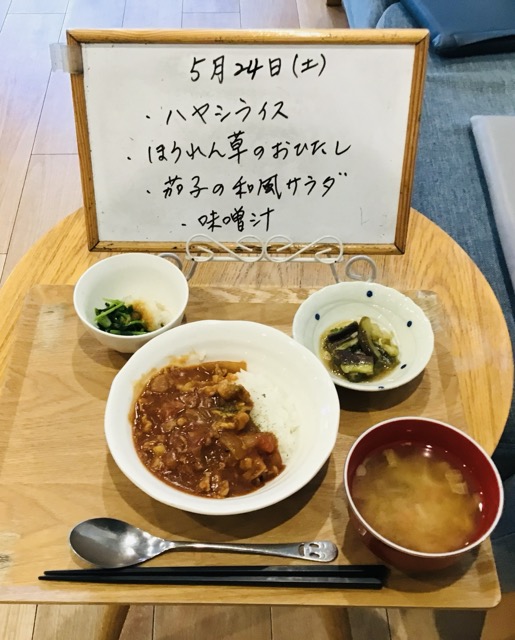 5月24日(土)
・ハヤシライス
・ほうれん草のおひたし
・茄子の和風サラダ
・味噌汁